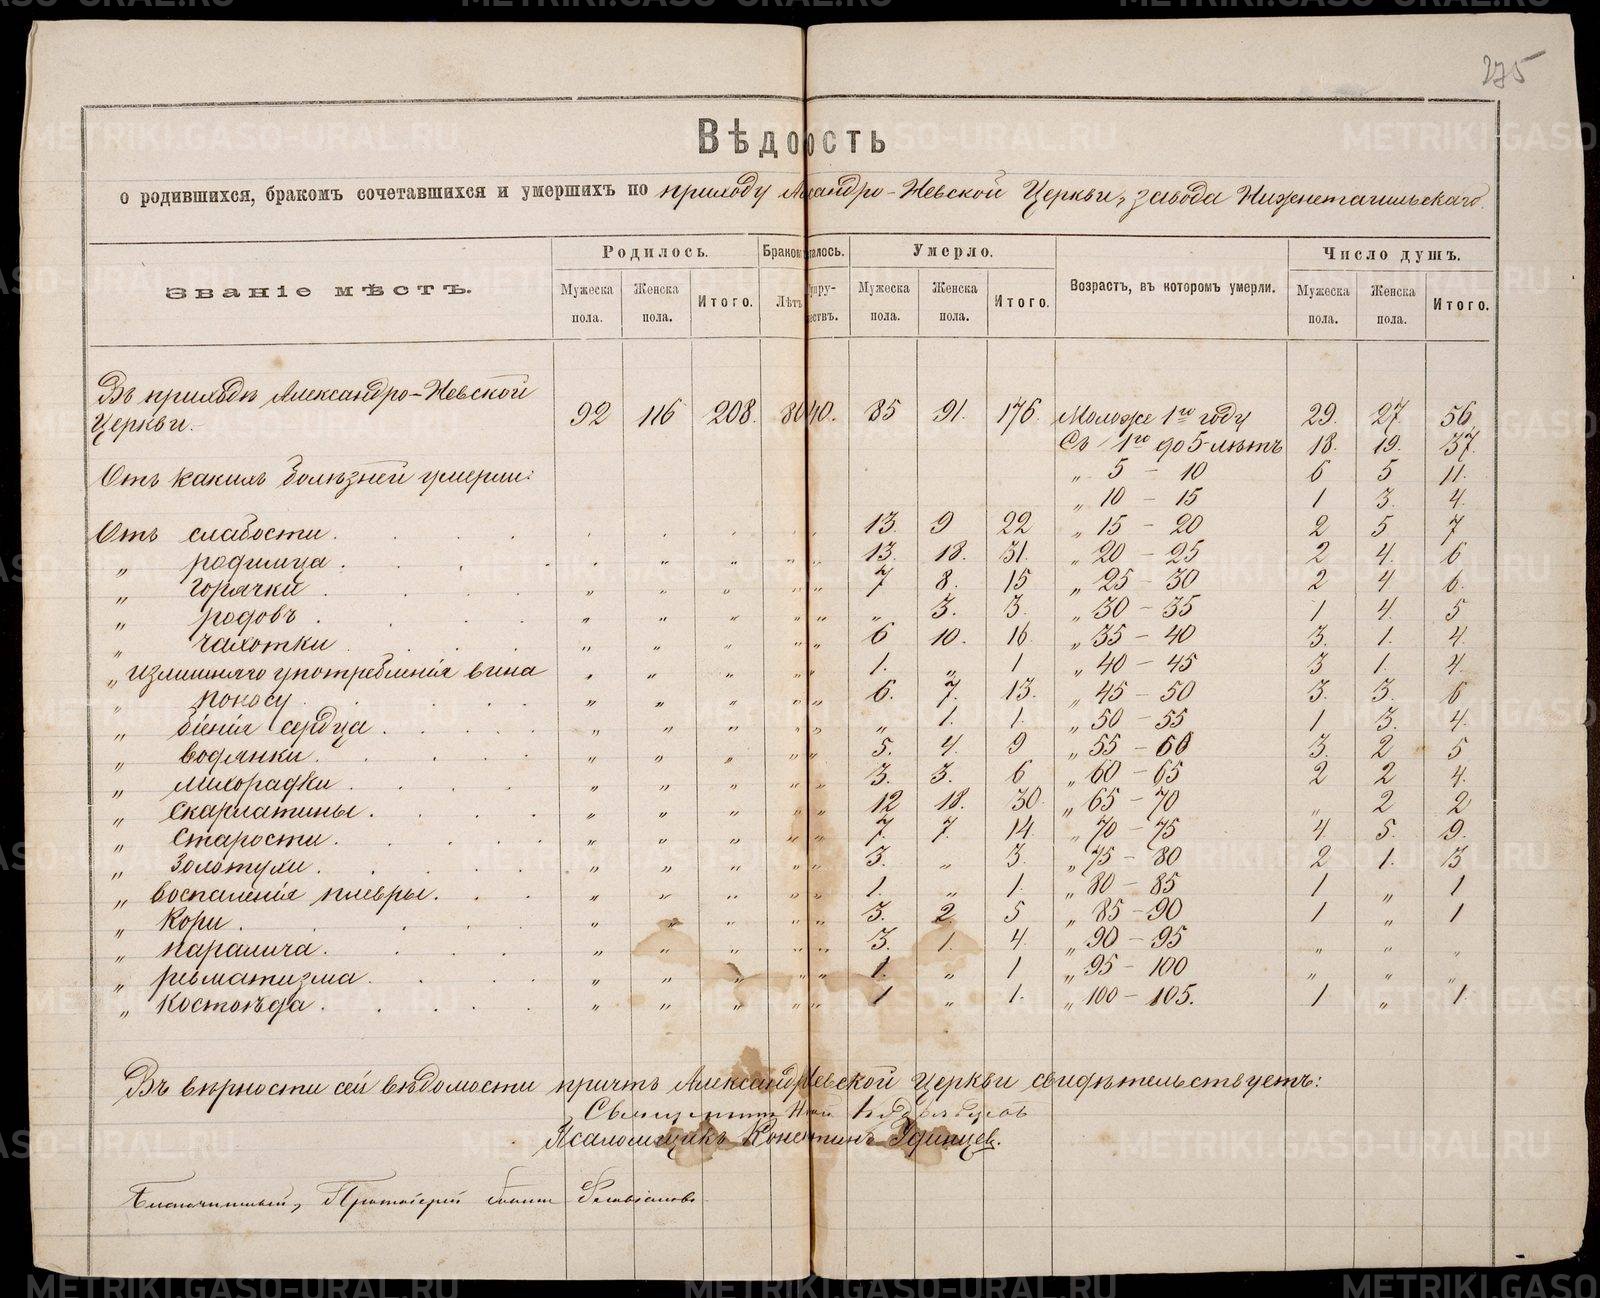 275
Вѣдоость
о родившихся, бракомъ сочетавшихся и умершихъ по приходу Александро-Невской Церкви, завода Нижнетагильскаго.
Званіе мѣстъ. Родилось. Бракомъ талось. Умерло. Возрастъ, въ которомъ умерли. Число душъ.
Мужеска пола. Женска пола. Итого. Лѣтъ Супружествъ. Мужеска пола. Женска пола. Итого. Мужеска пола. Женска пола. Итого.
Въ приходѣ Александро-Невской
Церкви.- 92 116 208. 80 40. 85 91. 176. Моложе 1го году 29. 27. 56.
Съ 1го до 5 лѣтъ 18. 19. 37.
Отъ какихъ болѣзней умерли: „ 5 - 10 6 5 11.
„ 10 - 15 1 3. 4.
Отъ слабости. 13. 9 22 „ 15 - 20 2 5 7
„ родимца. „ „ „ „ „ 13. 18. 31. „ 20 - 25 2 4. 6
„ горячки. „ „ „ „ „ 7 8. 15 „ 25 - 30 2 4 6.
„ родовъ. „ „ „ „ „ „ 3. 3. „ 30 - 35 1 4. 5
„ чахотки „ „ „ „ „ 6 10. 16. „ 35 - 40 3. 1. 4.
„ излишняго употребленія вина „ „ „ „ „ 1. „ 1 „ 40 - 45 3 1. 4
„ поносу. „ „ „ „ „ 6. 7. 13. „ 45 - 50 3. 3. 6
„ біенія сердца. „ „ „ „ „ „ 1. 1. „ 50 - 55 1 3. 4.
„ водянки. „ „ „ „ „ 5. 4. 9 „ 55 - 60 3. 2 5
„ лихорадки. „ „ „ „ „ 3. 3. 6 „ 60 - 65 2 2 4.
„ скарлатины. „ „ „ „ „ 12 18. 30. „ 65 - 70 „ 2 2
„ старости. „ „ „ „ „ 7. 7. 14. „ 70 - 75 4 5. 9.
„ золотухи. „ „ „ „ „ 3. „ 3. „ 75 - 80 2 1. 3
„ воспаленія плевры. „ „ „ „ „ 1. „ 1. „ 80 - 85 1 „ 1
„ кори. „ „ „ „ „ 3. 2 5 „ 85 - 90 1 „ 1
„ паралича. „ „ „ „ „ 3. 1. 4. „ 90 - 95 „ „ „
„ ревматизма. „ „ „ „ „ 1. „ 1 „ 95 - 100 „ „ „
„ костоѣда. „ „ „ „ „ 1 „ 1. „ 100 - 105. 1 „ 1.
Въ вѣрности сей вѣдомости причтъ Александро-Невской Церкви свидѣтельствуетъ:
Священникъ
Псаломщикъ Константинъ Удинцев.
Благочинный, Протоіерей
METRIKI.GASO-URAL.RU